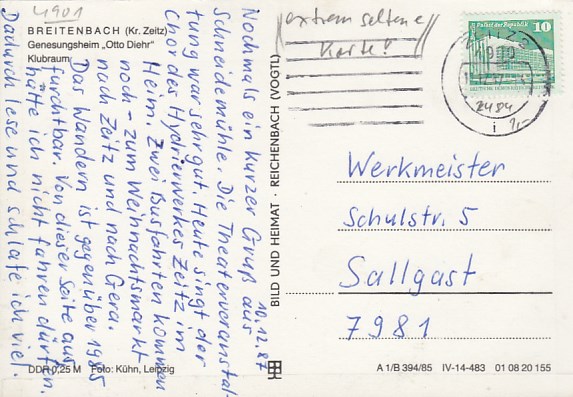 4901
BREITENBACH (Kr. Zeitz)
Genesungsheim „Otto Diehr"
Klubraum
extrem seltene
Karte!
Palast der Republik
10
DDR
ZEITZ
2484
i
1,-
10.12.87
Nochmals ein kurzer Gruß aus
Schneidemühle. Die Theaterveranstal-
tung war sehr gut. Heute singt der
Chor des Hydrierwerkes Zeitz im
Heim. Zwei Busfahrten kommen
noch - zum Weihnachtsmarkt
nach Zeitz und nach Gera.
Das Wandern ist gegenüber 1985
furchtbar. Von dieser Seite aus
hätte ich nicht fahren dürfen.
Dadurch lese und schlafe ich viel.
BILD UND HEIMAT · REICHENBACH (VOGTL)
Werkmeister
Schulstr. 5
Sallgast
7981
DDR 0,25 M Foto: Kühn, Leipzig
A 1/B 394/85 IV-14-483 01 08 20 155